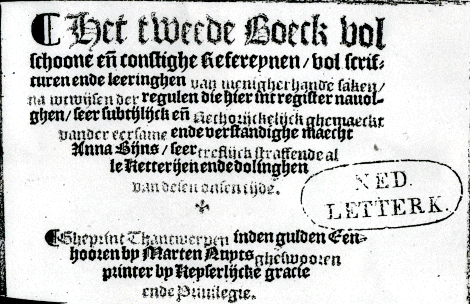 Het tweede Boeck vol
schoone eñ constighe Refereynen/ vol scrif-
turen ende leeringhen van menigherhande saken/
na wtwijsen der regulen die hier int register navol-
ghen/ seer subtijlijck eñ Rethorijckelijck ghemaeckt
vander eersame ende verstandighe maecht
Anna Bijns/ seer treflijck straffende al
le Ketterijen ende dolinghen
van desen onsen tijde.
NED.
LETTERK.
Gheprint Thantwerpen inden gulden Een-
hooren by Marten Nuyts ghesworen
printer by Keyserlijcke gracie
ende Privilegie.